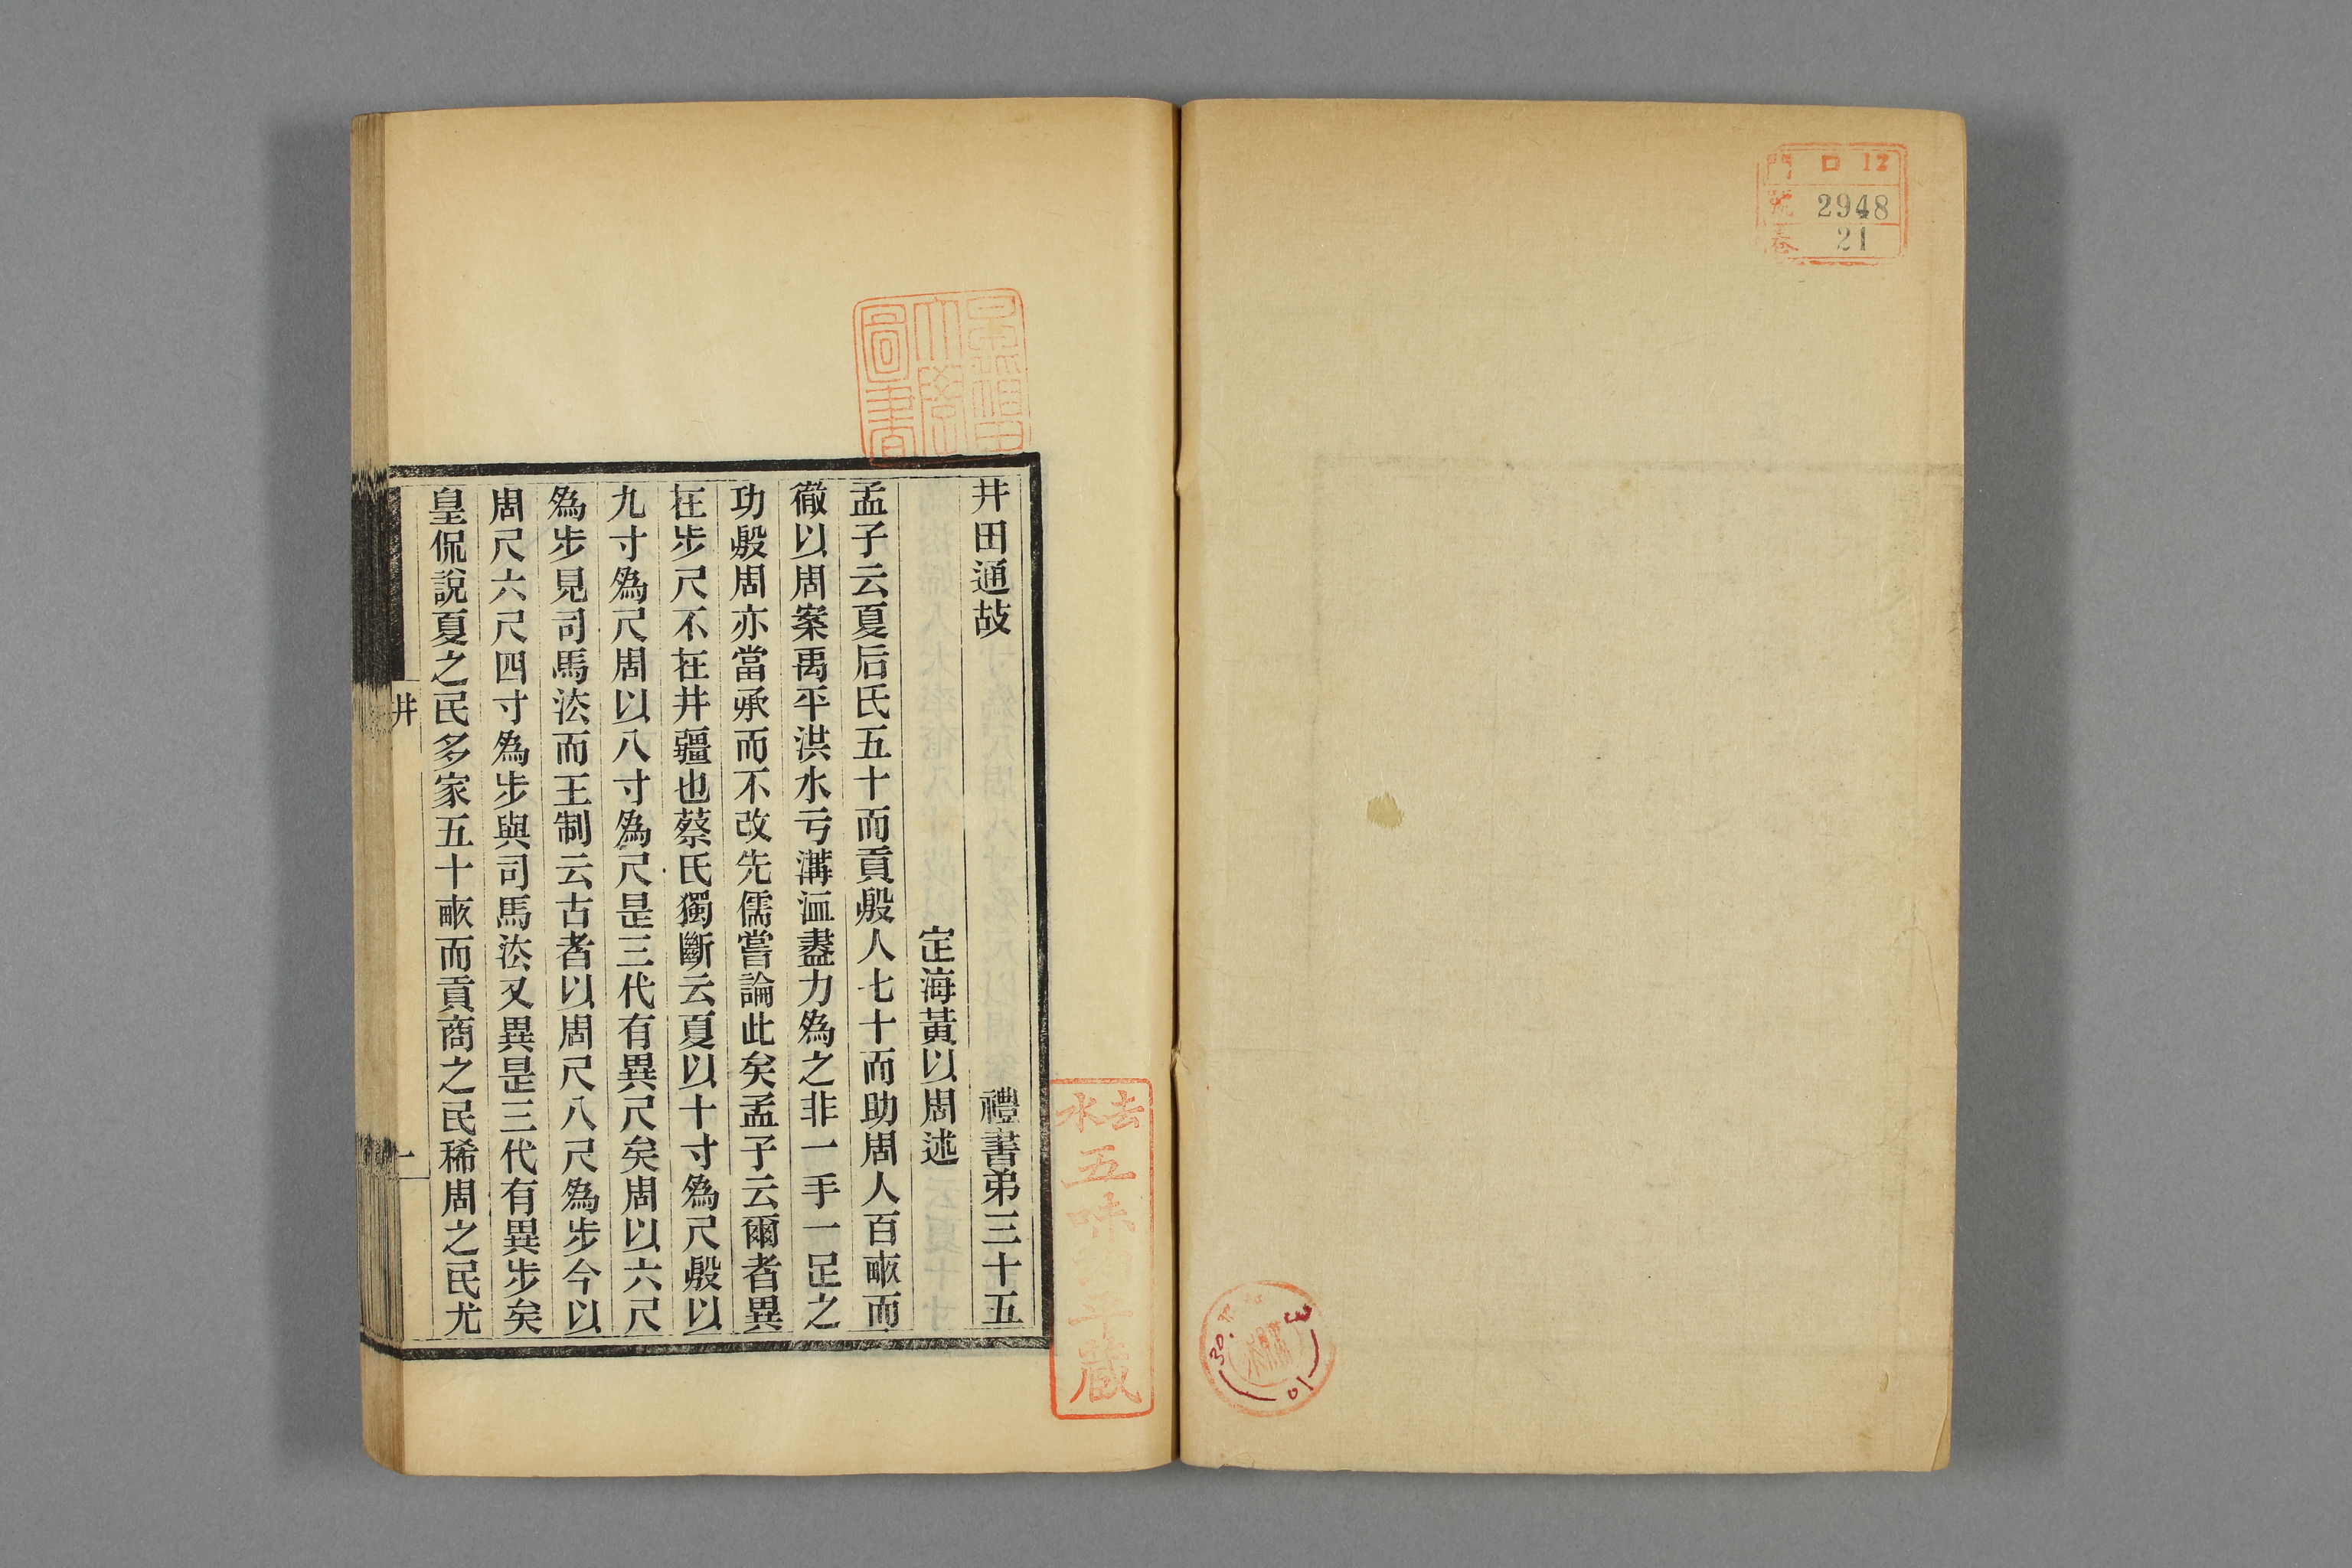 門 口 12
號 2948
卷 21
井田通故 禮書弟三十五
定海黃以周述
孟子云夏后氏五十而貢殷人七十而助周人百畞而
徹以周案禹平洪水亏溝洫盡力為之非一手一足之
功殷周亦當承而不改先儒嘗論此矣孟子云爾者異
在步尺不在井疆也蔡氏獨斷云夏以十寸為尺殷以
九寸為尺周以八寸為尺是三代有異尺矣周以六尺
為步見司馬法而王制云古者以周尺八尺為步今以
周尺六尺四寸為步與司馬法又異是三代有異步矣
皇侃說夏之民多家五十畞而貢商之民稀周之民尤
井
一
早稻田大學圖書
去水
五味
藏
30.
3
10